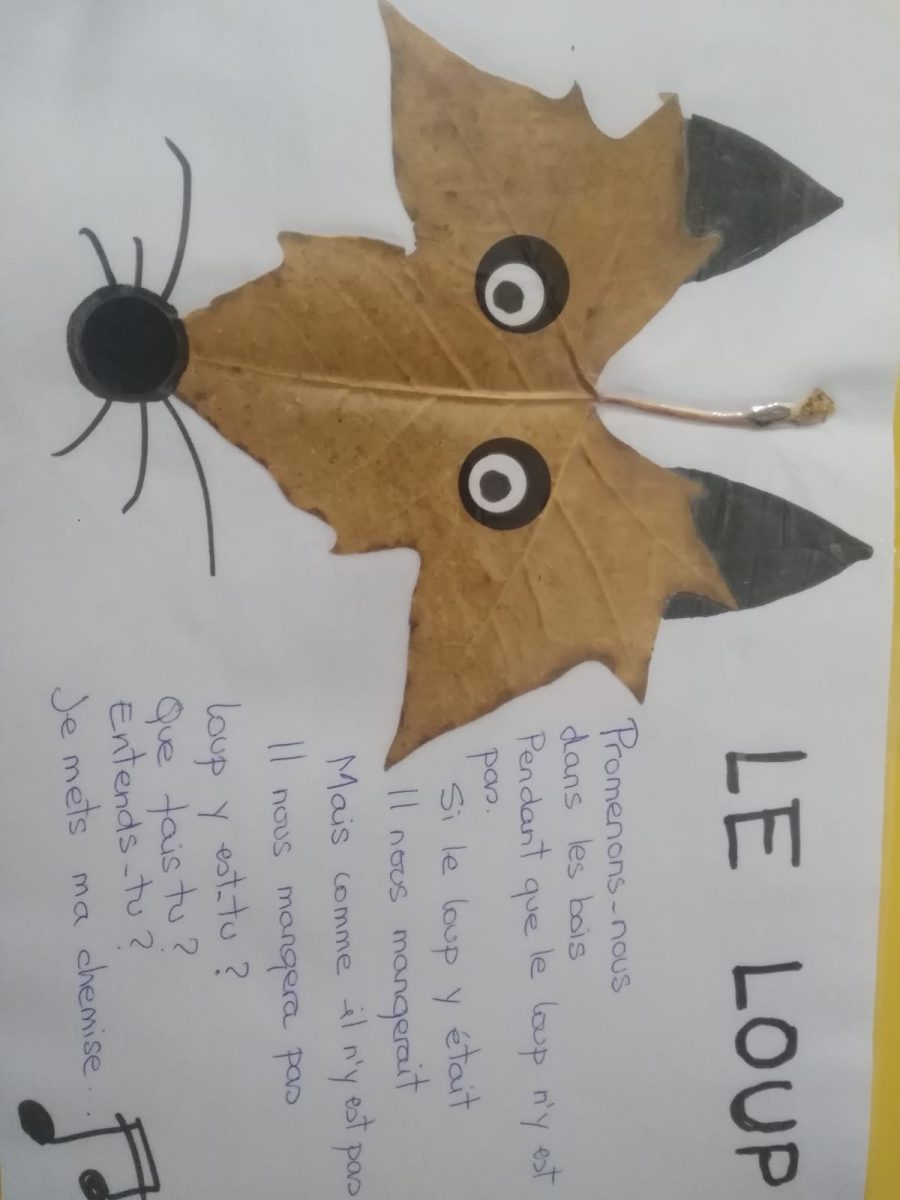 LE LOUP
Promenons-nous
dans les bois
Pendant que le loup n'y est
pas.
Si le loup y était
Il nous mangerait
Mais comme il n'y est pas
Il nous mangera pas
Loup y est-tu ?
Que fais tu ?
Entends-tu ?
Je mets ma chemise...